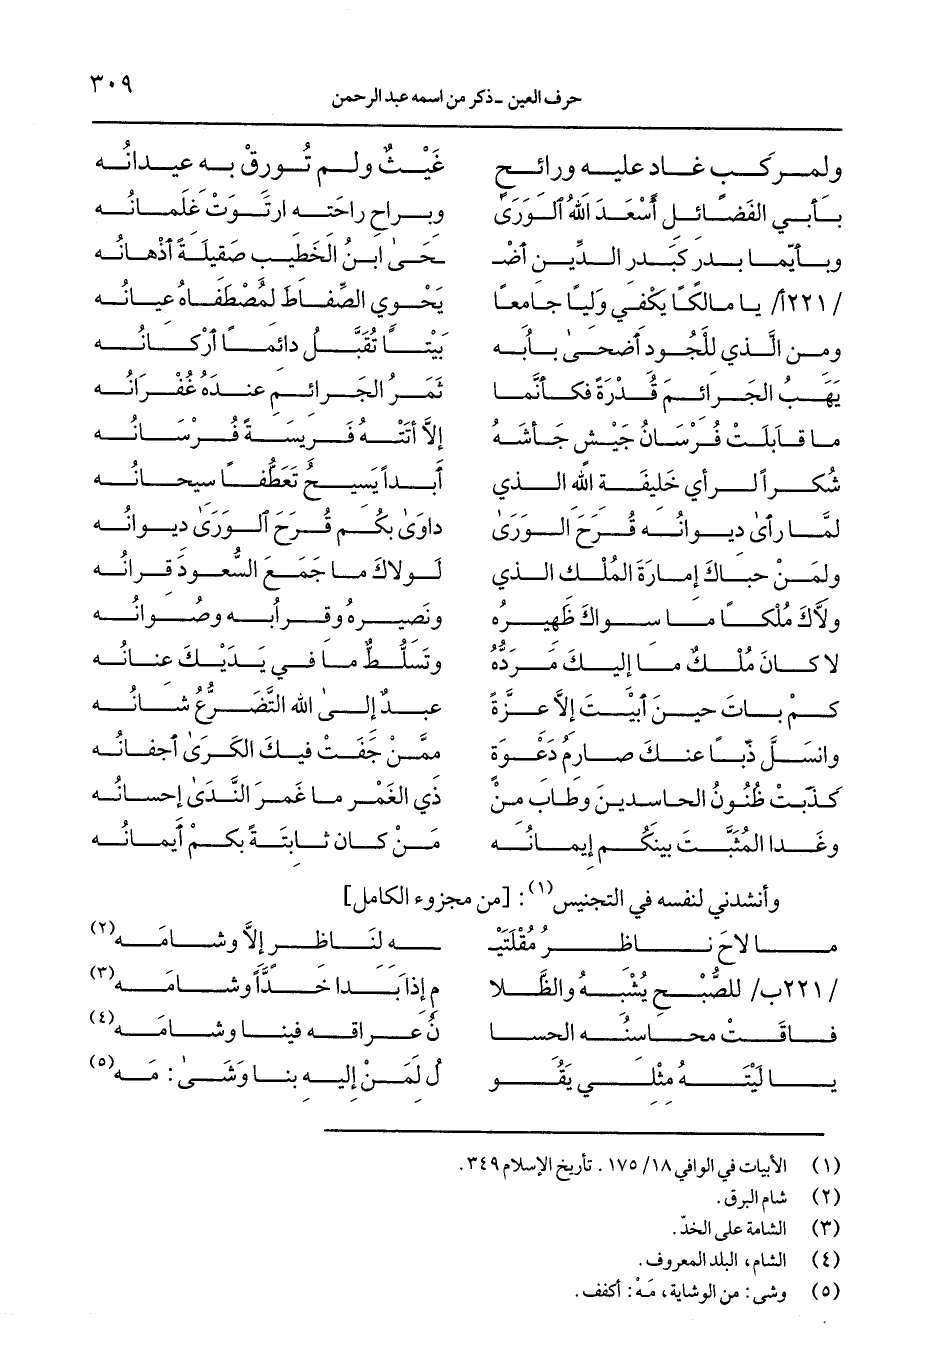 ٣٠٩
حرف العين - ذكر من اسمه عبد الرحمن
ولمركب غاد عليه ورائح غَيْثٌ ولم تُورقْ به عيدانُه
بأبي الفضائل أَسْعَدَ اللهُ الورَىٰ وبراحِ راحتِه ارتَوَتْ غلمانُه
وبأيّما بدر كبَدر الدِّين أضْـ ـحَىٰ ابنُ الخَطيبِ صَقيلَةً أذْهانُه
/ ٢٢١أ/ يا مالكًا يكْفي وليًا جامعًا يَحْوي الصِّفاطَ لمُصْطَفاهُ عيانُه
ومن الَّذي للجُود أضحىٰ بابه بَيْتًا تُقَبَّل دائمًا أرْكانُه
يَهَبُ الجَرائمَ قُدْرَةً فكأنَّما ثَمَرُ الجَرائم عندَهُ غُفْرانُه
ما قابلَتْ فُرْسَانُ جَيْش جَأْشَهُ إلاَّ أتَتْهُ فَريسَةً فُرْسَانُه
شُكراً لرأي خَليفَة الله الذي أبداً يَسيحُ تَعَطُّفًا سيحانُه
لمَّا رأىٰ ديوانُه قُرَحَ الوَرَىٰ داوَىٰ بكُم قُرَحَ الوَرَىٰ ديوانُه
ولمَنْ حباكَ إمارَةَ المُلْك الذي لولاكَ ما جَمَعَ السُّعودَ قرانُه
ولاَّكَ مُلْكًا ما سواكَ ظَهيرُه ونَصيرُه وقرابُه وصُوانُه
لا كانَ مُلْكٌ ما إليكَ مَرَدُّهُ وتَسَلُّطٌ ما في يَدَيْكَ عنانُه
كم باتَ حينَ أبَيْتَ إلاَّ عزَّةً عبدٌ إلىٰ الله التَّضَرُّعُ شانُه
وانسَلَّ ذَبًّا عنكَ صارمُ دَعْوَة ممَّنْ جَفَتْ فيكَ الكَرَىٰ أجفانُه
كذبَتْ ظُنُونُ الحاسدينَ وطابَ منْ ذي الغَمْر ما غمرَ النَّدَىٰ إحسانُه
وغَدا المُثَبَّتَ بينكُم إيمانُه مَنْ كان ثابتَةً بكُمْ أَيمانُه
وأنشدني لنفسه في التجنيس(١): [من مجزوء الكامل]
ما لاحَ ناظرُ مُقْلَتَيْـ ـه لنَاظرٍ إلاَّ وشامَه(٢)
/ ٢٢١ب/ للصُّبْح يُشْبهُ والظَّلا م إذا بَدا خَدًّا وشامَه(٣)
فاقَتْ محاسنُه الحسا نُ عراقه فينا وشامَه(٤)
يا لَيْتَهُ مثْلي يَقُو لُ لمَنْ إليه بنا وَشَىٰ: مَه(٥)
(١) الأبيات في الوافي ١٨/ ١٧٥. تأريخ الإسلام ٣٤٩.
(٢) شام البرق.
(٣) الشامة على الخدّ.
(٤) الشام، البلد المعروف.
(٥) وشى: من الوشاية، مَهْ: أكفف.